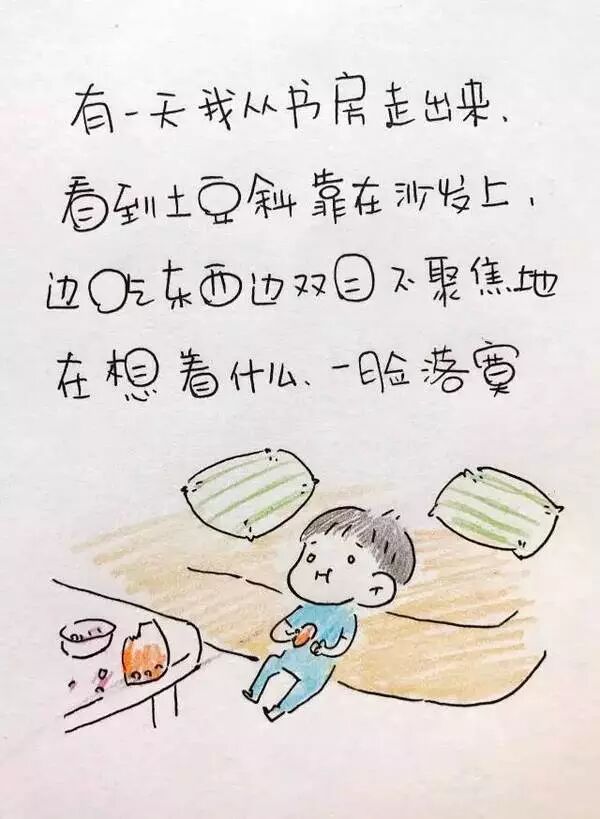 有一天我从书房走出来、
看到土豆斜靠在沙发上，
边吃东西边双目不聚焦地
在想着什么、一脸落寞